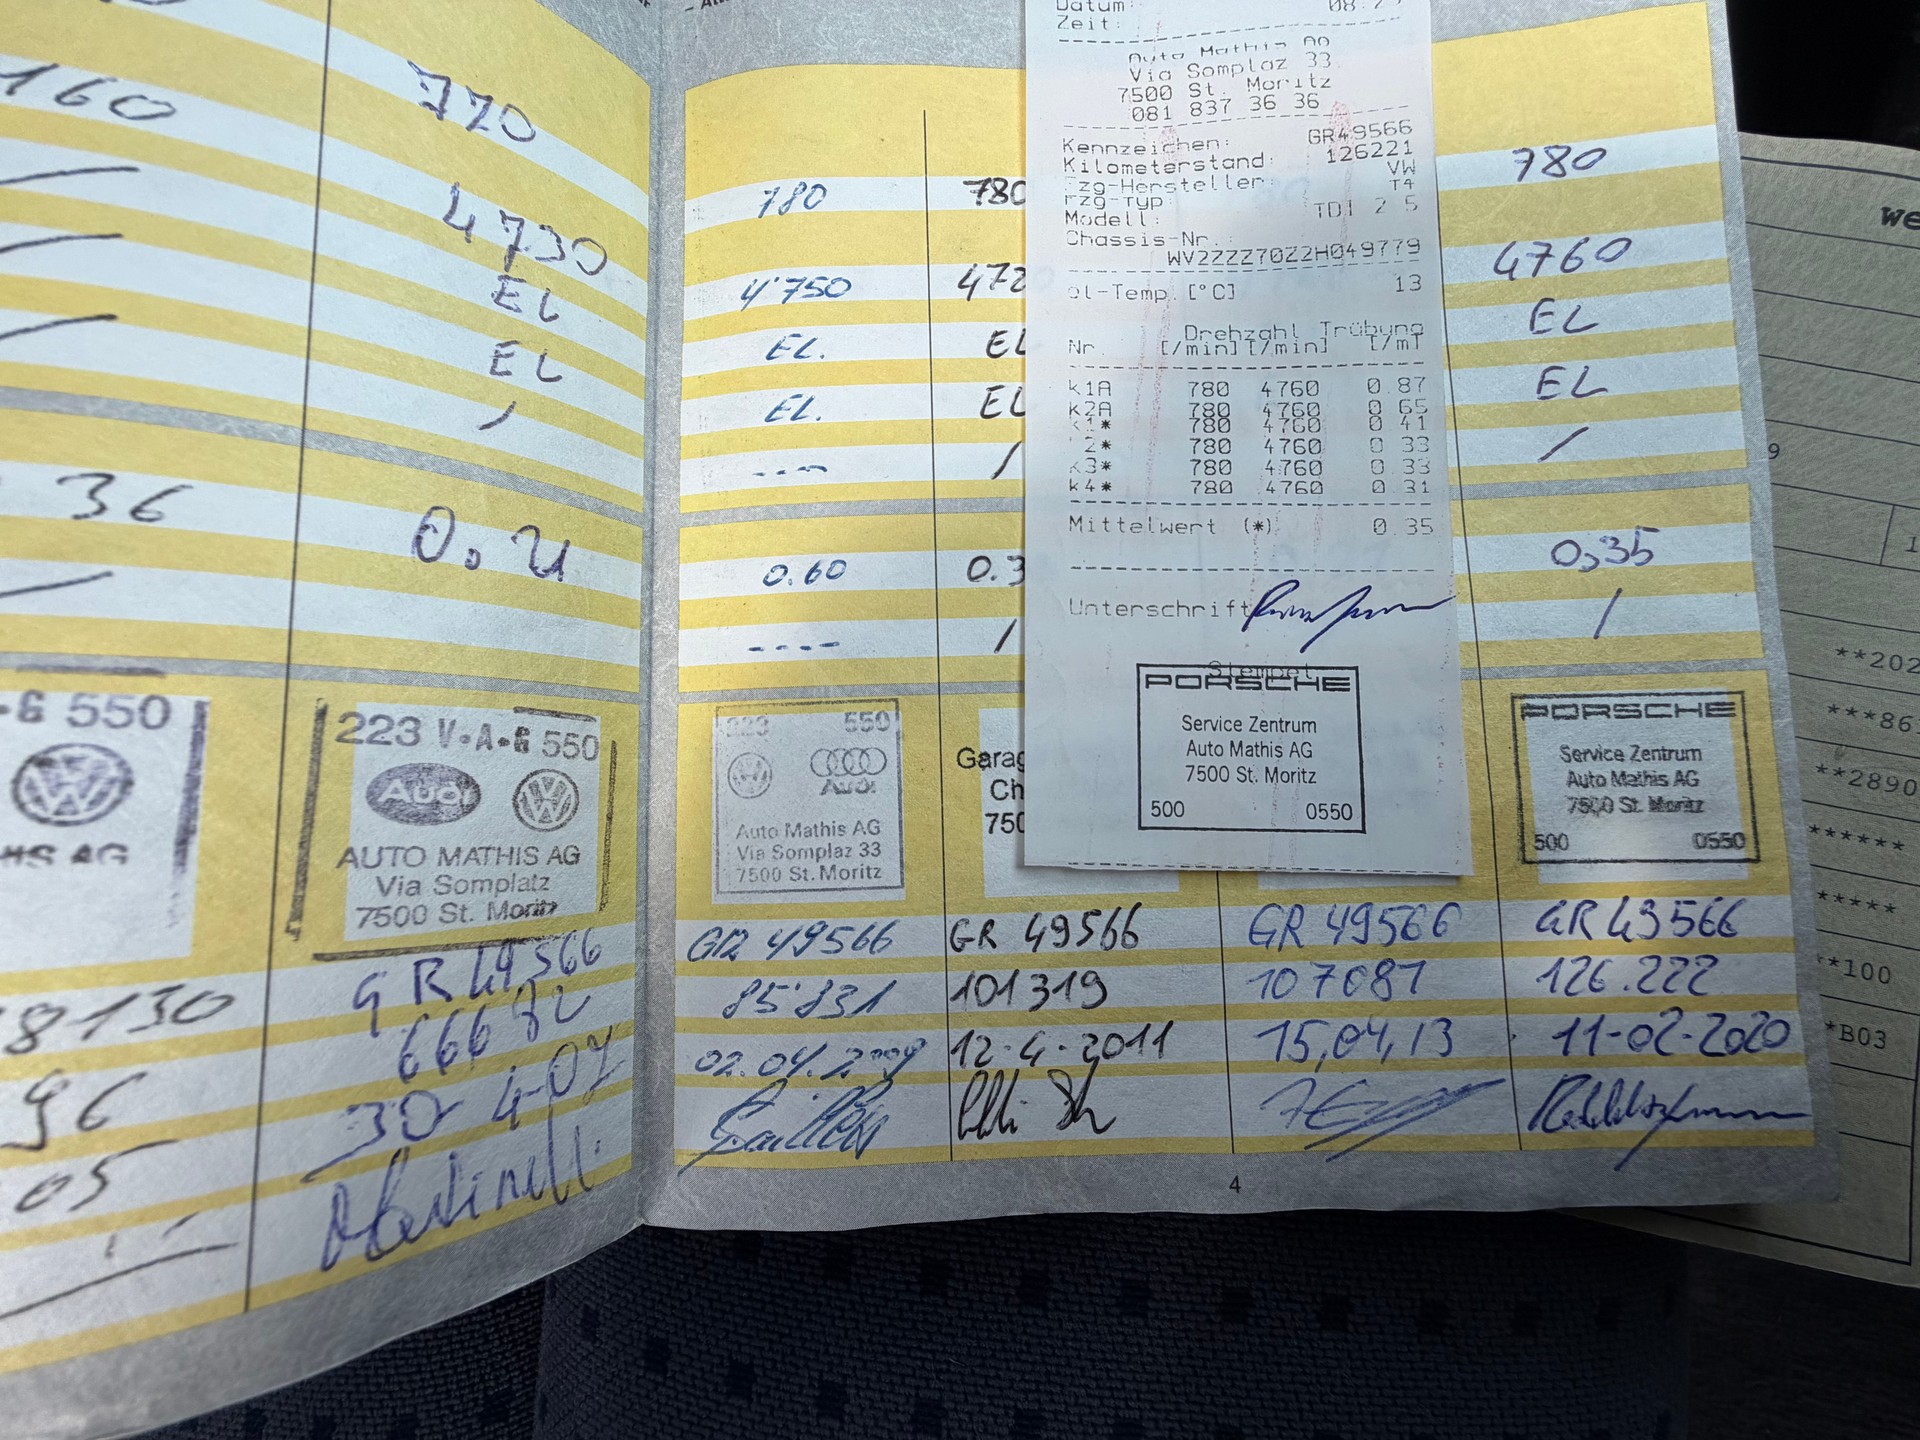 160
36
-G 550
HIS AG
8130
96
05
770
4730
EL
EL
/
223 V•A•G 550
Audi
AUTO MATHIS AG
Via Somplatz
7500 St. Moritz
GR 49566
66682
30 4-07
780
4'750
EL.
EL.
----
0.60
----
223 550
Audi
Auto Mathis AG
Via Somplaz 33
7500 St. Moritz
GR 49566
85'831
02.04.2009
780
472
EL
EL
/
0.3
/
Garag
Ch
750
GR 49566
101319
12-4-2011
Datum:
Zeit:
Auto Mathis AG
Via Somplaz 33
7500 St. Moritz
081 837 36 36
Kennzeichen: GR49566
Kilometerstand: 126221
Fzg-Hersteller: VW
Fzg-Typ: T4
Modell: TDI 2 5
Chassis-Nr.
WV2ZZZ70Z2H049779
Öl-Temp. [°C] 13
Drehzahl Trübung
Nr. [/min] [/min] [/m]
k1A 780 4760 0.87
k2A 780 4760 0.65
k1* 780 4760 0.41
k2* 780 4760 0.33
k3* 780 4760 0.33
k4* 780 4760 0.31
Mittelwert (*) 0.35
Unterschrift
Stempel
PORSCHE
Service Zentrum
Auto Mathis AG
7500 St. Moritz
500 0550
GR 49566
107081
15,04,13
780
4760
EL
EL
/
0,35
/
PORSCHE
Service Zentrum
Auto Mathis AG
7500 St. Moritz
500 0550
GR 49566
126.222
11-02-2020
4
we
9
1
**202
***86
**2890
******
*****
**100
*B03